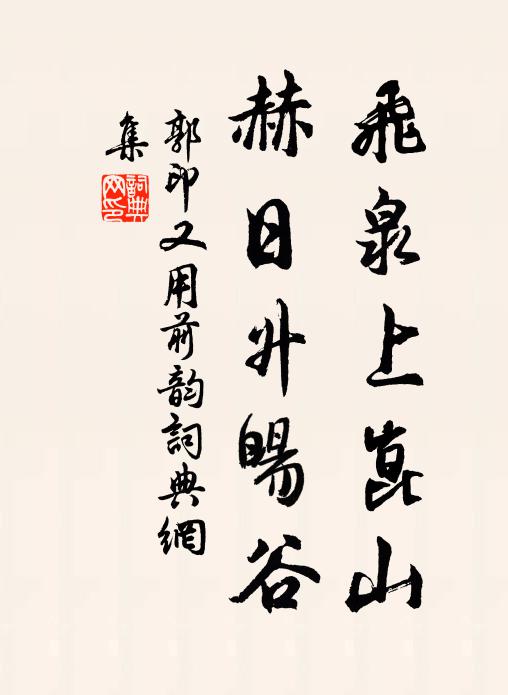 飛泉上崑山
赫日升暘谷
郭印又用前韵詞典網
集
詞典网印